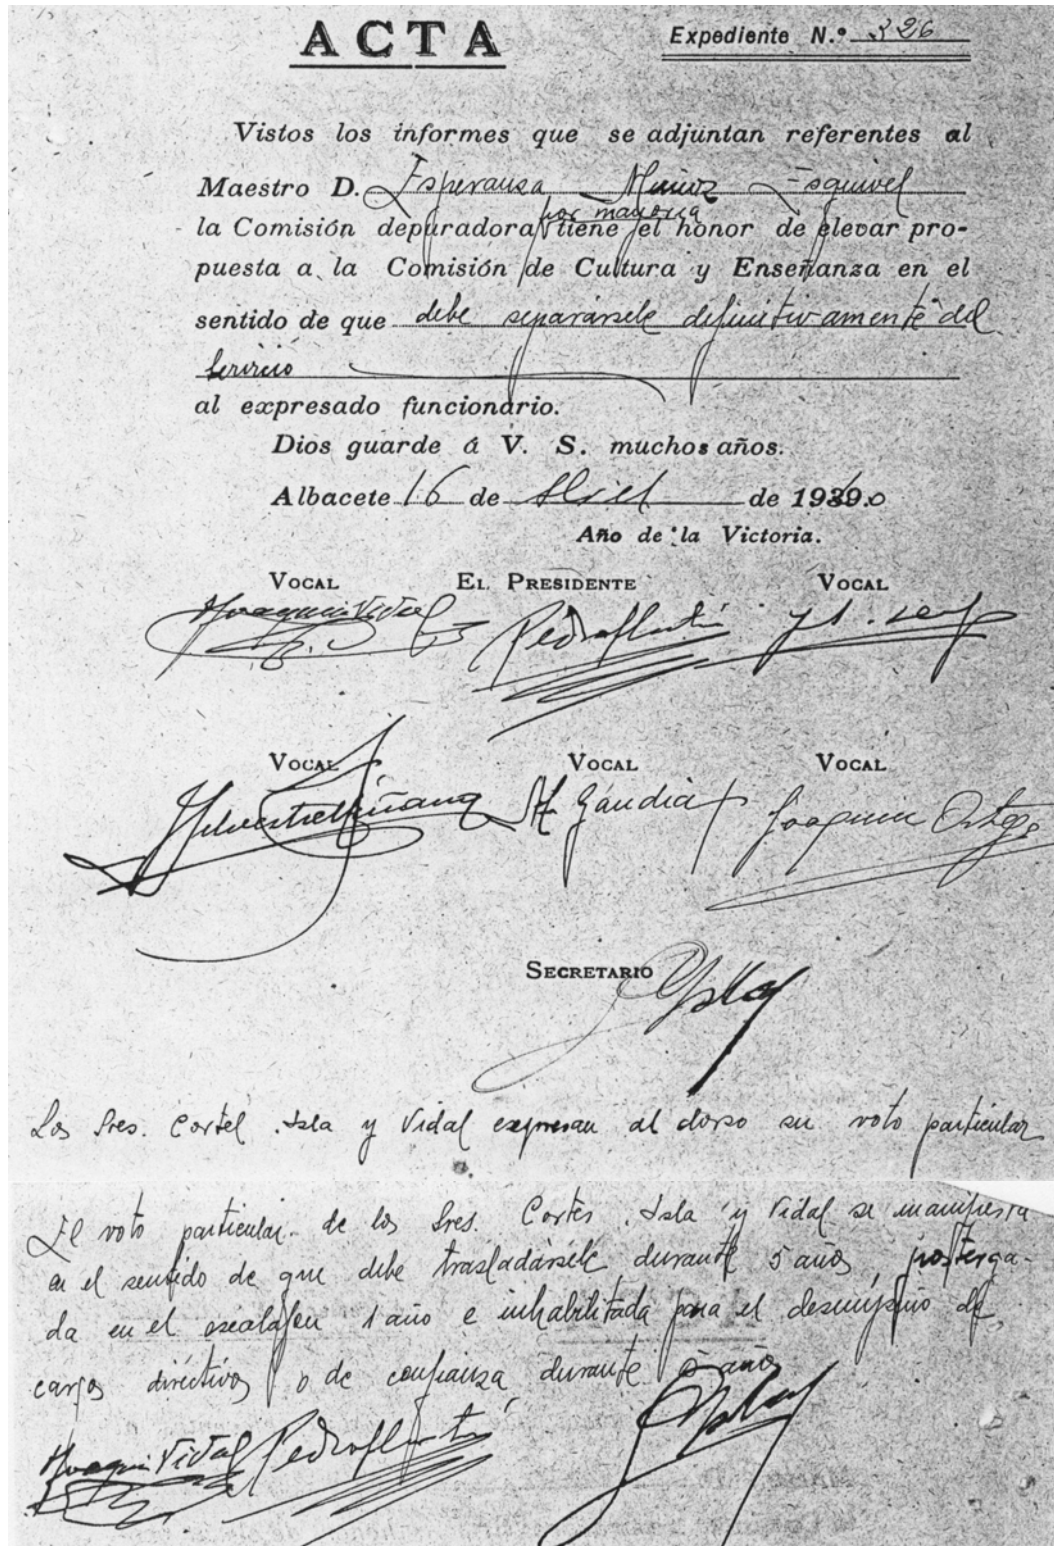 ACTA
Expediente N.º 326
Vistos los informes que se adjuntan referentes al
Maestro D. Esperanza Muñoz Esquivel
por mayoría
la Comisión depuradora tiene el honor de elevar pro-
puesta a la Comisión de Cultura y Enseñanza en el
sentido de que debe separársele definitivamente del
servicio
al expresado funcionario.
Dios guarde á V. S. muchos años.
Albacete 16 de Abril de 1940
Año de la Victoria.
VOCAL EL PRESIDENTE VOCAL
Joaquin Vidal
VOCAL VOCAL VOCAL
Silvestre Gandia Joaquin Ortega
SECRETARIO
Los Sres. Cortés Isla y Vidal expresan al dorso su voto particular
El voto particular de los Sres. Cortés, Isla y Vidal se manifiesta
en el sentido de que debe trasladársele durante 5 años, posterga-
da en el escalafón 1 año e inhabilitada para el desempeño de
cargos directivos o de confianza durante 5 años
Joaquin Vidal